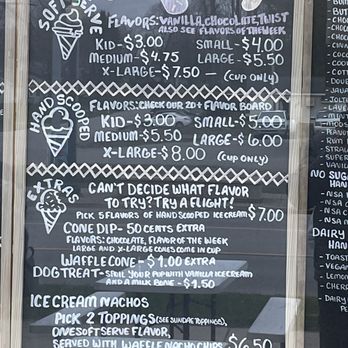 SOFT SERVE
FLAVORS: VANILLA, CHOCOLATE, TWIST
ALSO SEE FLAVORS OF THE WEEK
KID-$3.00 SMALL-$4.00
MEDIUM-$4.75 LARGE-$5.50
X-LARGE-$7.50 — (CUP ONLY)
HAND SCOOPED
FLAVORS: CHECK OUR 20+ FLAVOR BOARD
KID-$3.00 SMALL-$5.00
MEDIUM-$5.50 LARGE-$6.00
X-LARGE-$8.00 (CUP ONLY)
EXTRAS
CAN'T DECIDE WHAT FLAVOR
TO TRY? TRY A FLIGHT!
PICK 5 FLAVORS OF HAND SCOOPED ICE CREAM $7.00
CONE DIP- 50 CENTS EXTRA
FLAVORS: CHOCOLATE, FLAVOR OF THE WEEK
LARGE AND X-LARGE CONES COME IN CUP
WAFFLE CONE - $1.00 EXTRA
DOG TREAT- SPOIL YOUR PUP WITH VANILLA ICE CREAM
AND A MILK BONE - $1.50
ICE CREAM NACHOS
PICK 2 TOPPINGS (SEE SUNDAE TOPPINGS),
ONE SOFT SERVE FLAVOR,
SERVED WITH WAFFLE NACHO CHIPS $6.50
NO SUG
- NSA
- NSA
- NSA
DAIRY